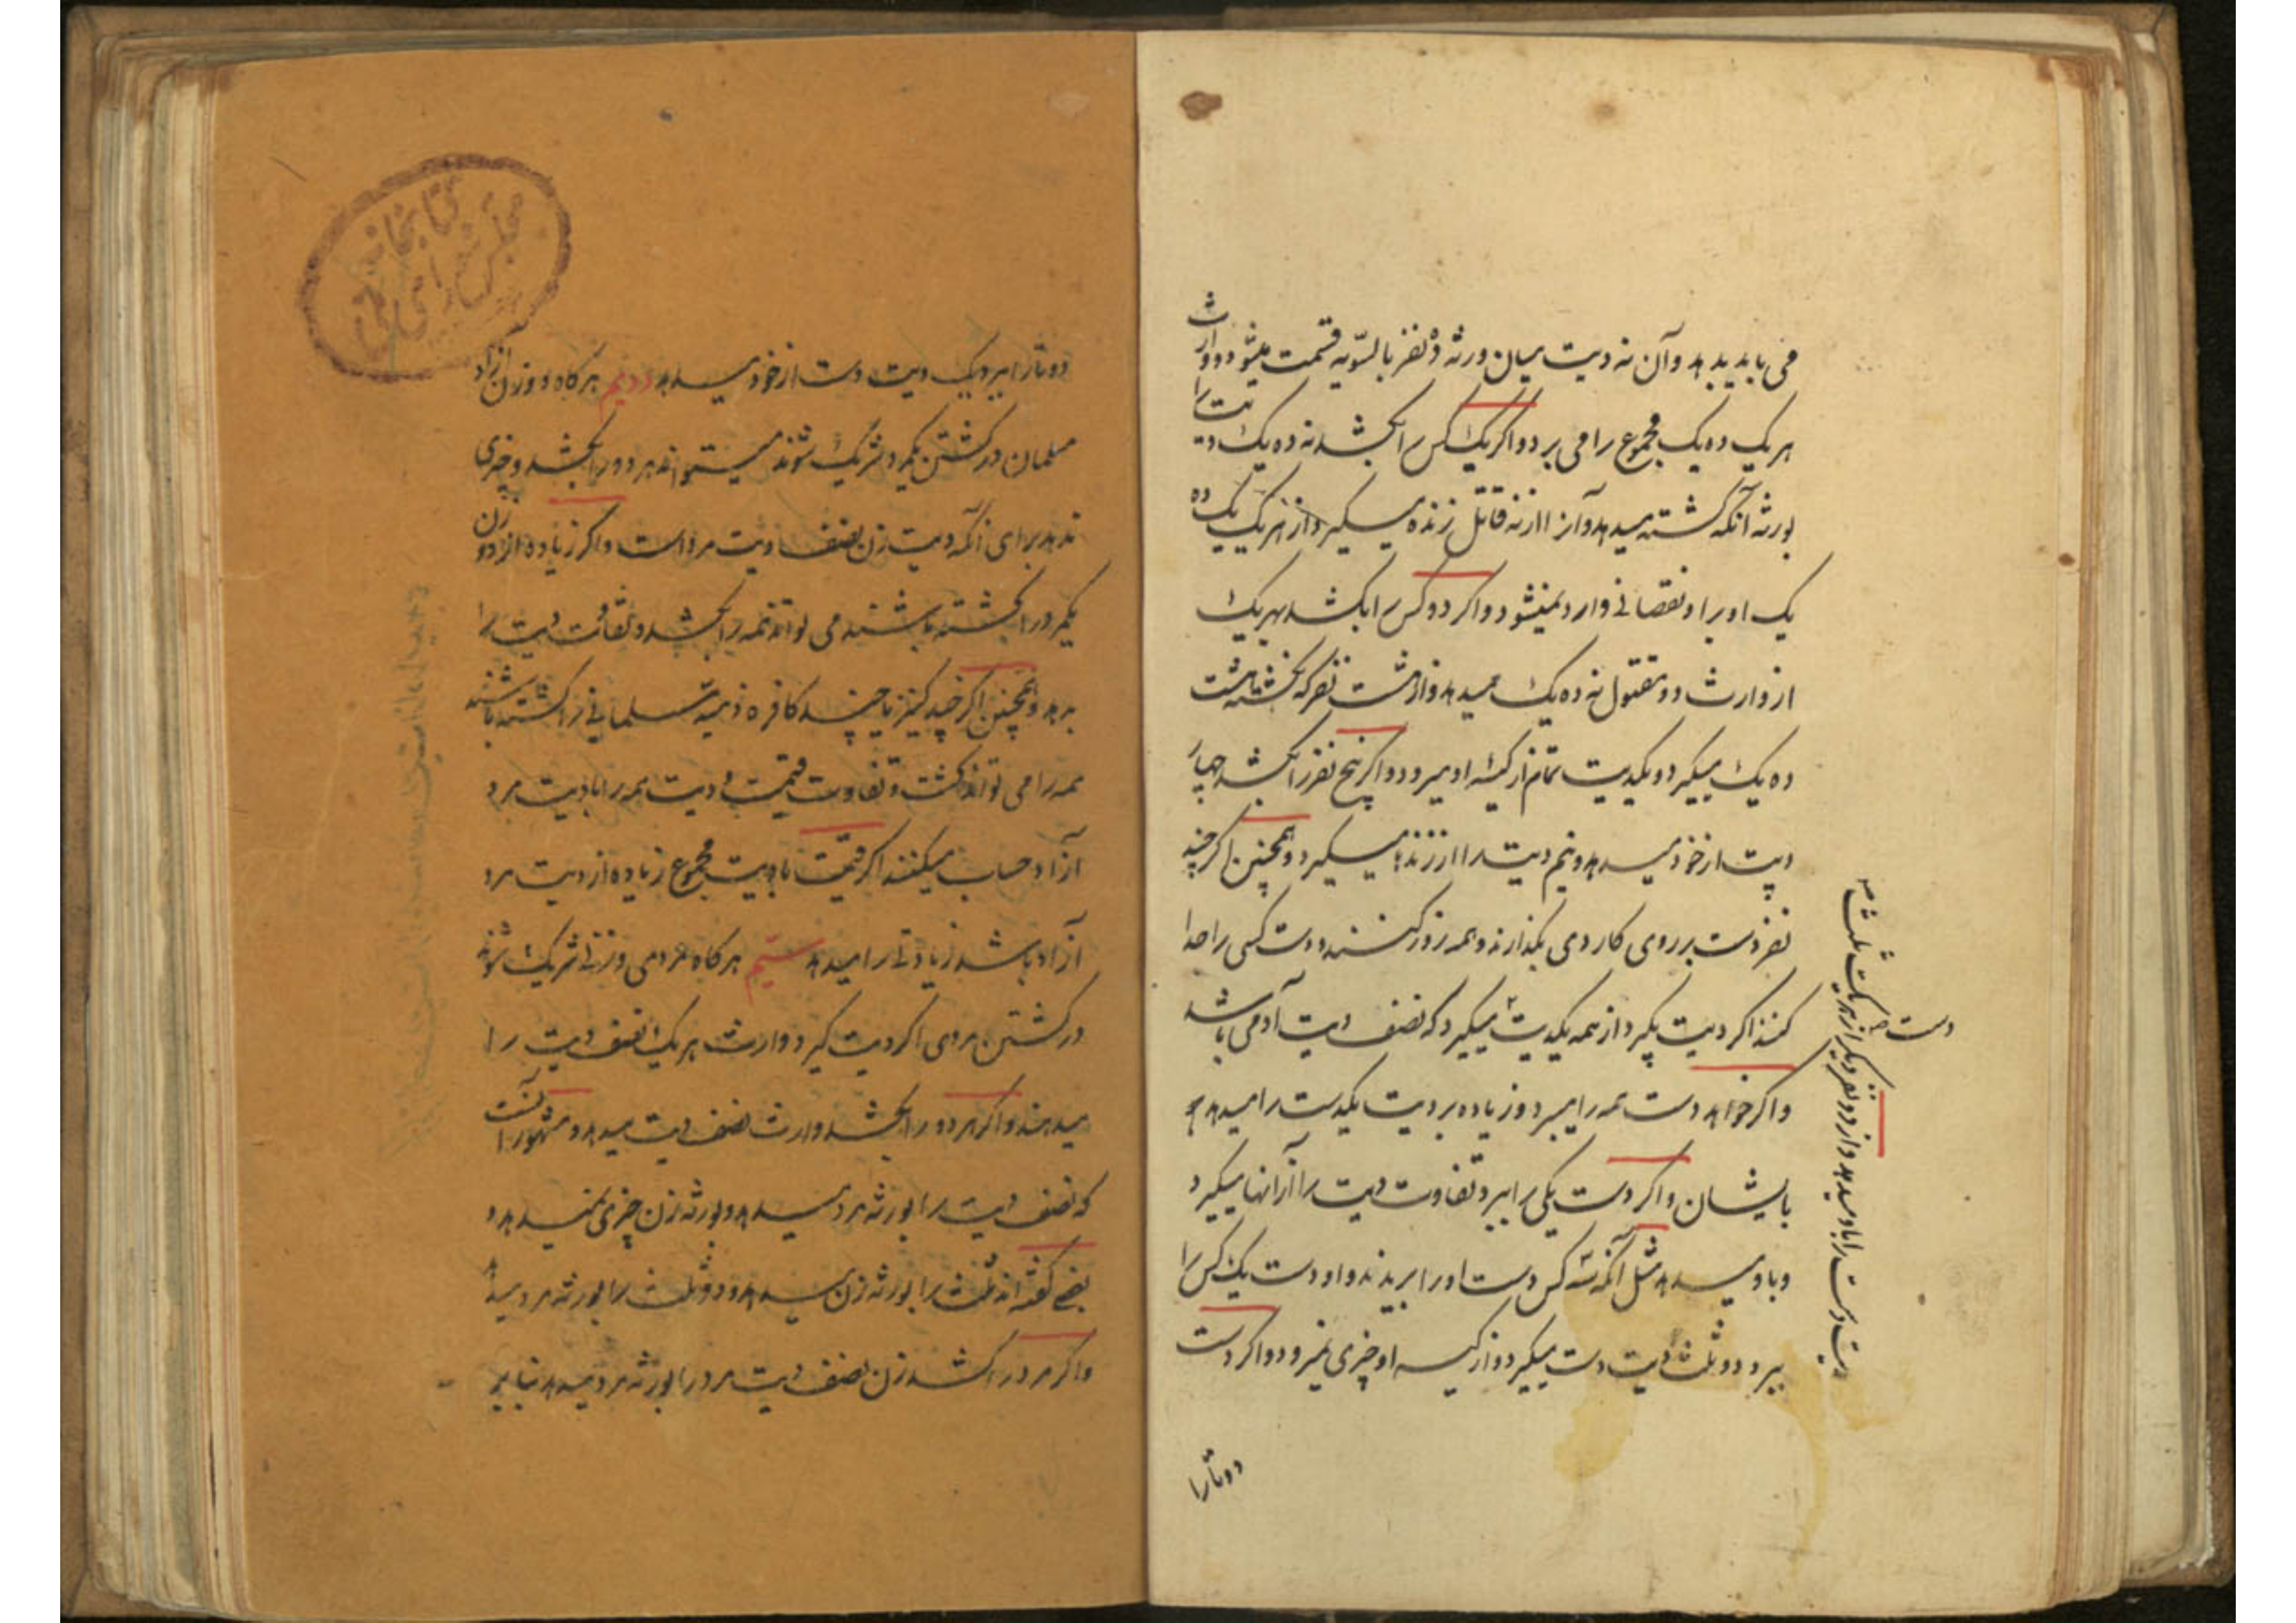 می باید بدهد و آن نه دیت میان ورثه ده نفر بالسّویه قسمت میشود و وارث
هر یک ده یک مجموع را می برد و اگر یک کس را بکشد نه ده یک دیت را
بورثه آنکه کشته میدهد و آنرا از نه قاتل زنده میگیرد از هر یک یک ده
یک او بر او نقصانی وارد نمیشود و اگر دو کس را بکشد بهر یک
از وارث دو مقتول نه ده یک میدهد و از هشت نفر که نکشته هشت
ده یک میگیرد و یکدیت تمام از کیسه او میرود و اگر پنج نفر را بکشد چهار
دیت از خود میدهد و نیم دیت را از زنده میگیرد و همچنین اگر چند
نفر دست بر روی کاردی بگذارند و همه زور کنند و دست کسی را جدا
کنند اگر دیت بگیرد از همه یکدیت میگیرد که نصف دیت آدمی باشد
و اگر خواهد دست همه را میبرد و زیاده بر دیت یکدست را میدهد
بایشان و اگر دست یکی را ببرد تفاوت دیت را از آنها میگیرد
و باو میدهد مثل آنکه سه کس دست او را بریدند و او دست یک کس را
ببرد دو ثلث دیت دست میگیرد و از کیسه او چیزی نمیرود و اگر دست
دو تا را
دیت دست را باو میدهد و از دو نفر دیگر از هر یک ثلث
دست
کتابخانه
مجلس شورای ملی
دو تا را ببرد یک دیت دست از خود میدهد دویم هر گاه دو زن آزاد
مسلمان در کشتن یکمرد شریک شوند میتواند هر دو را بکشد و چیزی
ندهد برای آنکه دیت زن نصف دیت مرد است و اگر زیاده از دو زن
یکمرد را کشته باشند می تواند همه را بکشد و تفاوت دیت را
بدهد و همچنین اگر چند کنیز یا چند کافره ذمیه مسلمانی را کشته باشند
همه را می تواند کشت و تفاوت قیمت و دیت همه را با دیت مرد
آزاد حساب میکنند اگر قیمت یا دیت مجموع زیاده از دیت مرد
آزاد باشد زیادتی را میدهد سیّم هر گاه مردی و زنی شریک شوند
در کشتن مردی اگر دیت گیرد وارث هر یک نصف دیت را
میدهند و اگر هر دو را بکشد وارث نصف دیت میدهد و مشهور آنست
که نصف دیت را بورثه مرد میدهد و بورثه زن چیزی نمیدهد و
بعضی گفته اند ثلث را بورثه زن میدهد و دو ثلث را بورثه مرد میدهد
و اگر مرد را کشد زن نصف دیت مرد را بورثه مرد میدهد بنا بر